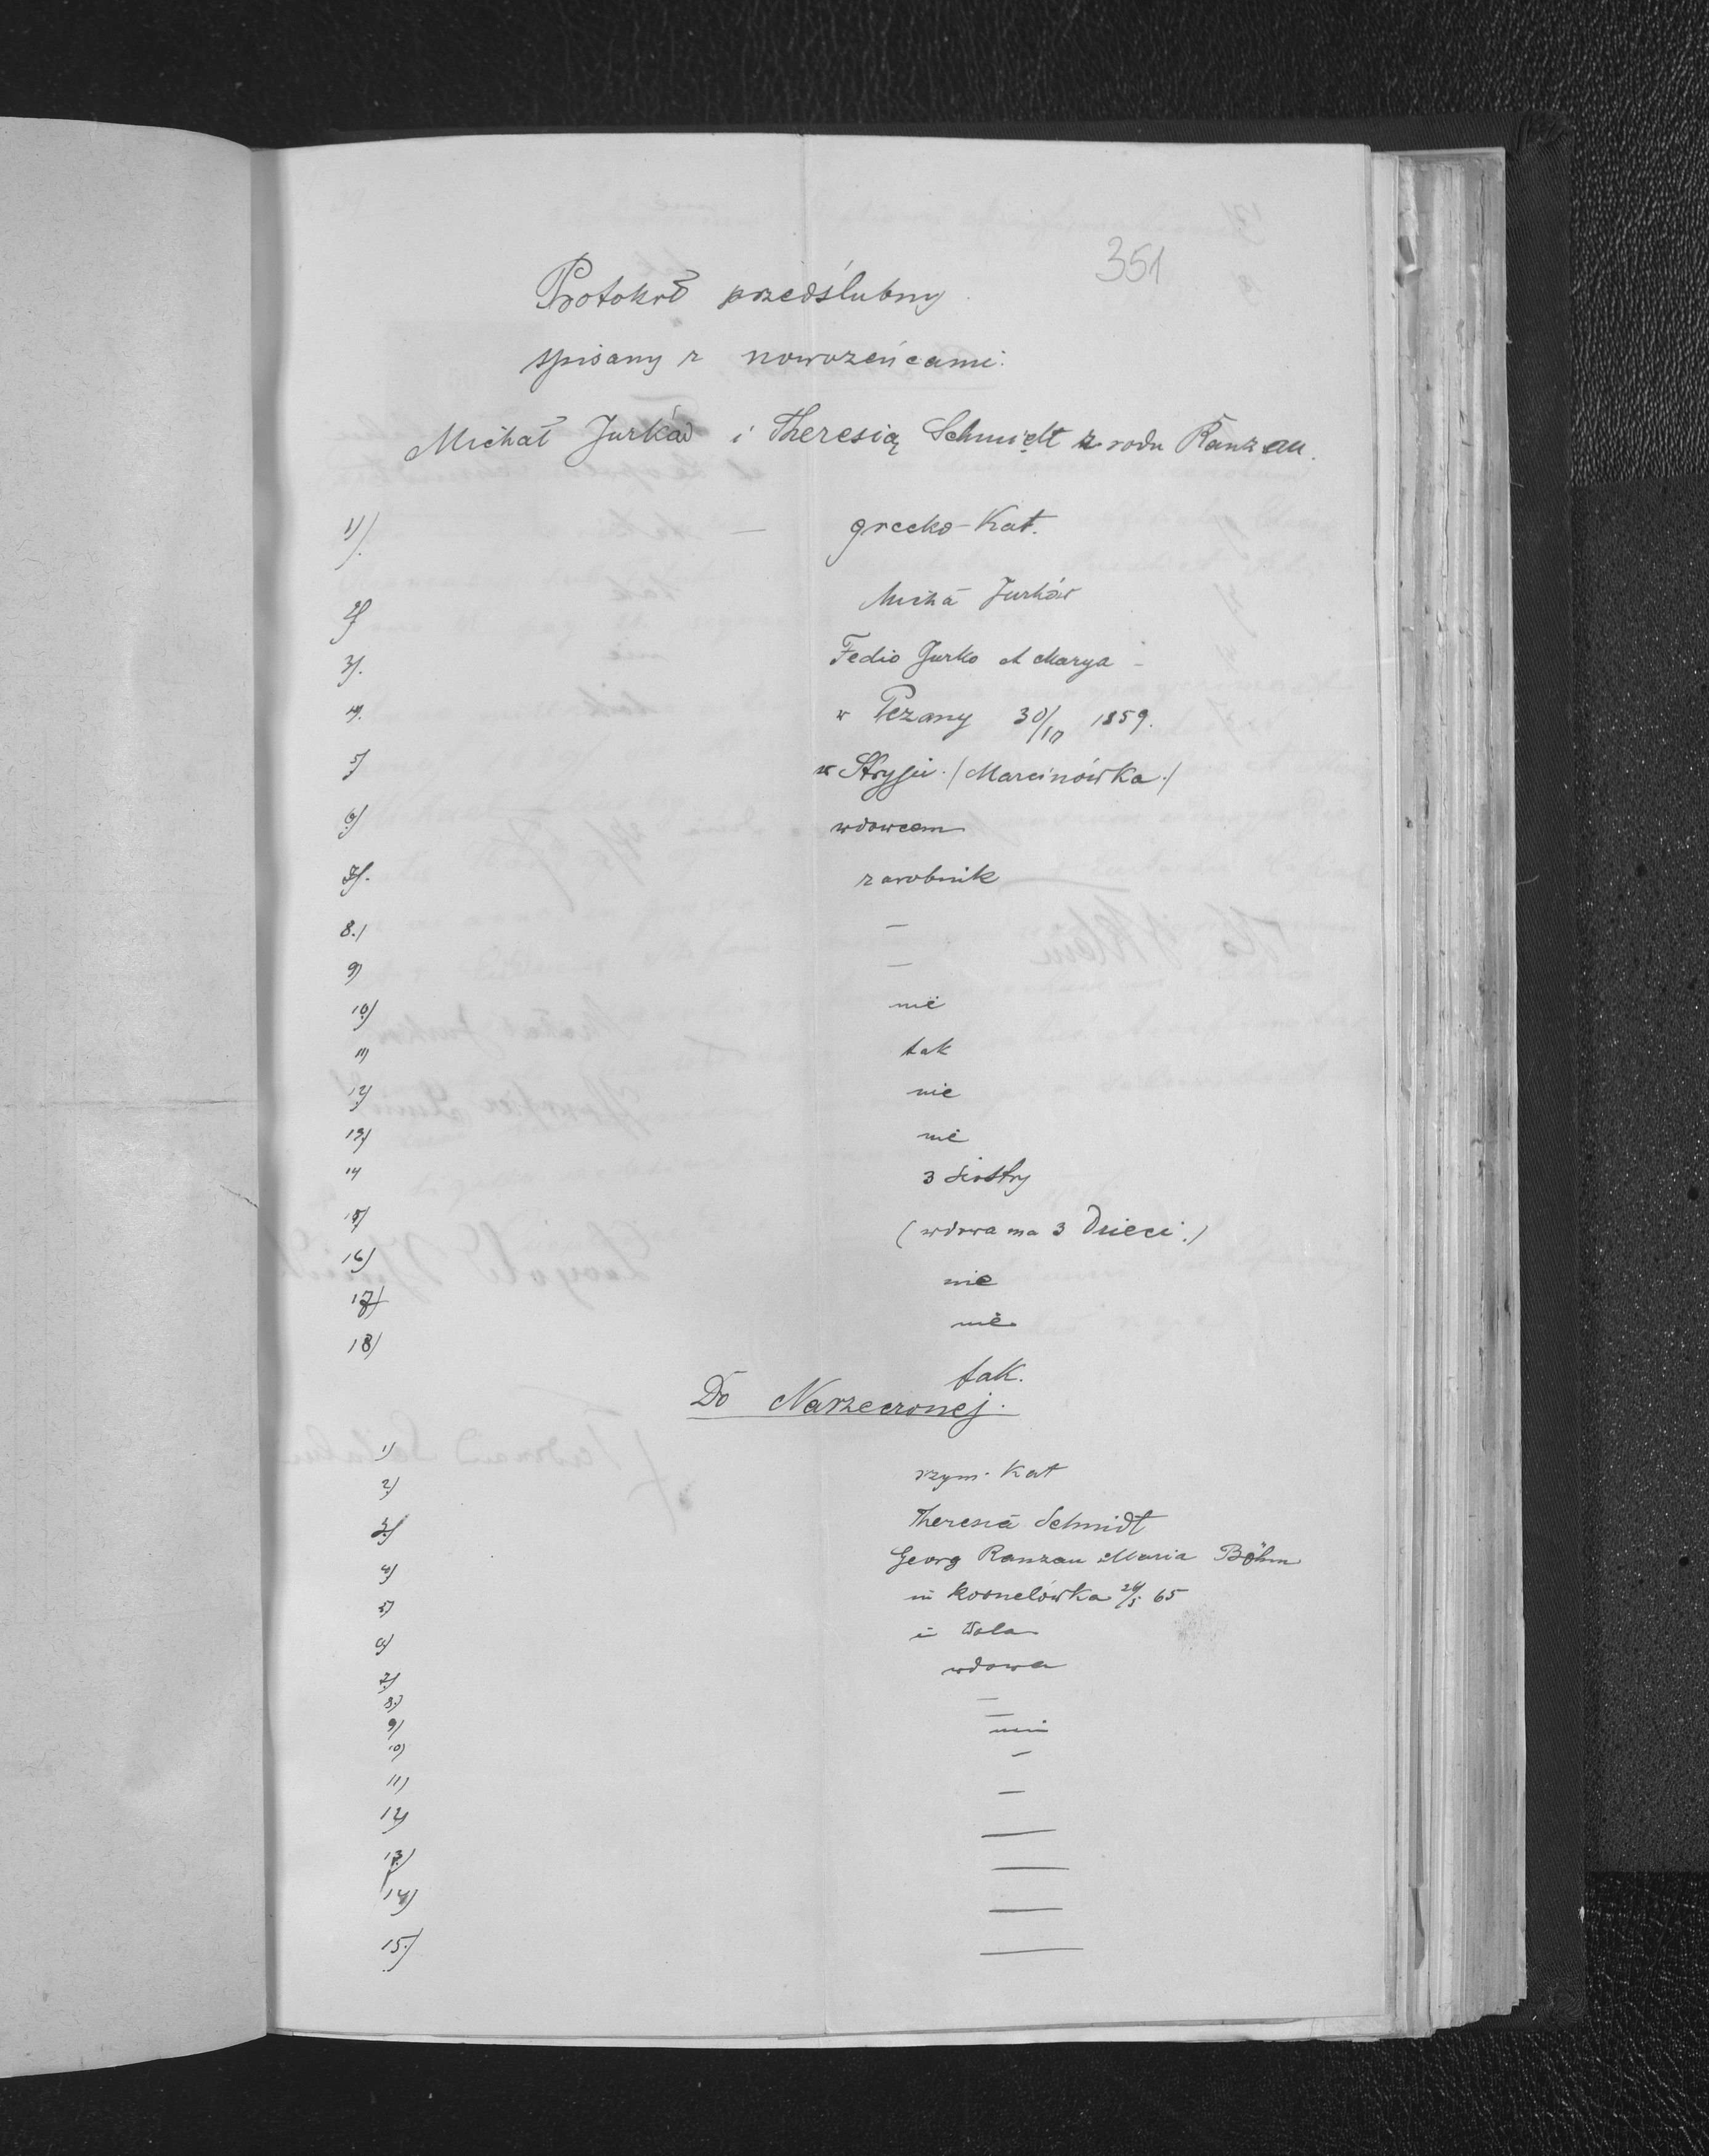 351
Protokoł przedślubny
spisany z nowożeńcami:
Michał Jurków i Theresią Schmidt z rodu Ranzau.
1). — grecko-Kat.
2) Michá Jurków
3). Fedio Jurko et Marya -
4). w 30/ 1859.
5) w Stryju. / Marcinówka /
6) wdowcem
7). zarobnik
8.) —
9) —
10) nie
11) tak
12) nie
13) nie
14 3 siostry
15) (wdowa ma 3 Dzieci.)
16) nie
17) nie
18) tak.
Do Narzeczonej.
1) rzym. Kat
2) Theresia Schmidt
3.) Georg Ranzau Maria Böhm
4) in Kornelówka 24/5 65
5) in Wola
6) wdowa
7.) —
8.) —
9)
10) —
11) —
12) —
13.) —
14) —
15.) —